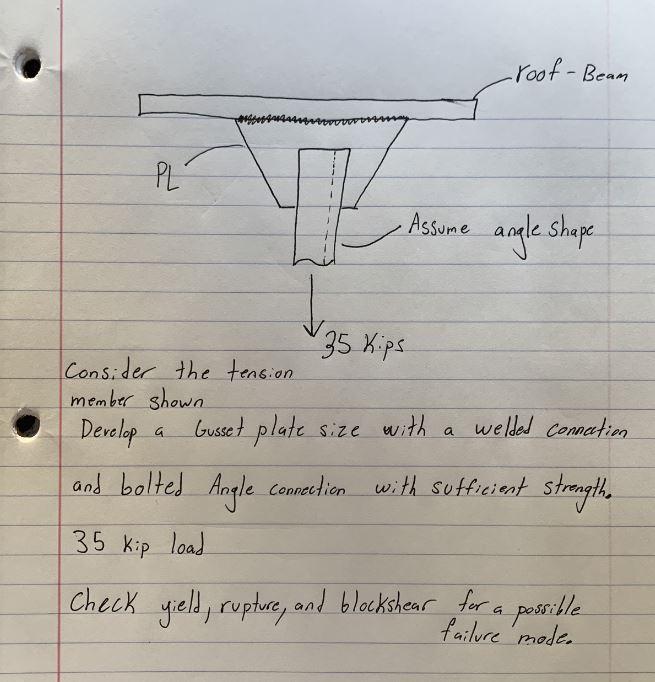 roof-Beam
PL
Assume angle shape
35 Kips
Consider the tension
member shown
Develop a Gusset plate size with a welded connection
and bolted Angle connection with sufficient strength.
35 kip load
Check yield, rupture, and blockshear for a possible
failure mode.